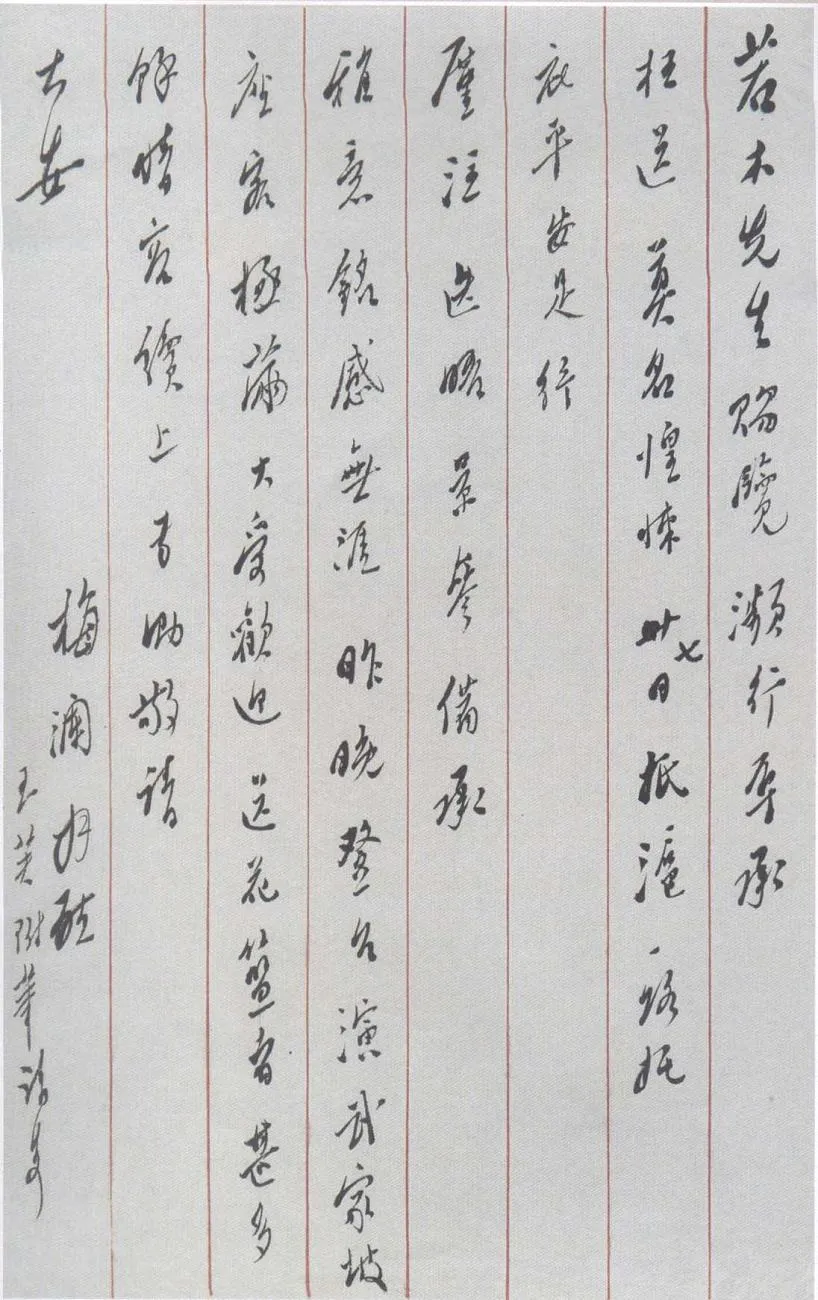 若木先生賜覽瀕行辱承
枉送莫名惶悚廿七日抵滬一路托
庇平安足紓
廑注迭晤景岑備承
雅意銘感無涯昨晚登台演武家坡
座客極滿大受歡迎送花籃者甚多
餘情容續上耑泐敬請
大安
梅瀾拜啟
玉芙附筆請安